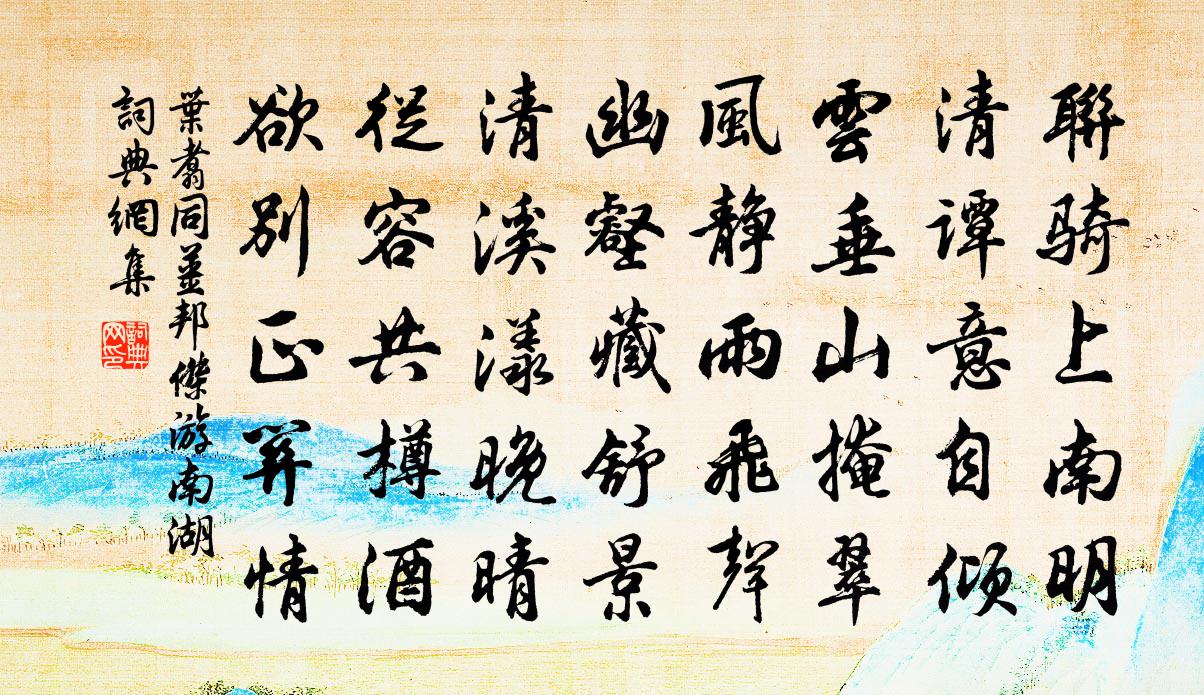 聯骑上南明
清谭意自倾
雲垂山掩翠
風静雨飛聲
幽壑藏舒景
清溪漾晚晴
從容共樽酒
欲别正關情
葉翥同薑邦傑游南湖
詞典網集
詞典网印